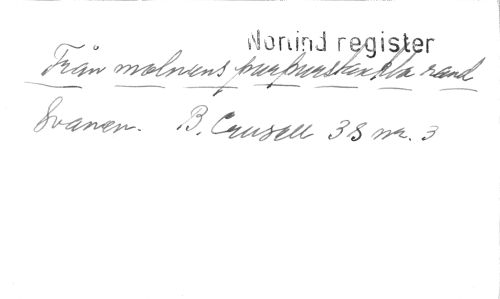 Norlind register
Från molnens purpurstänkta rand
Svanen. B. Crusell 3 S nr. 3